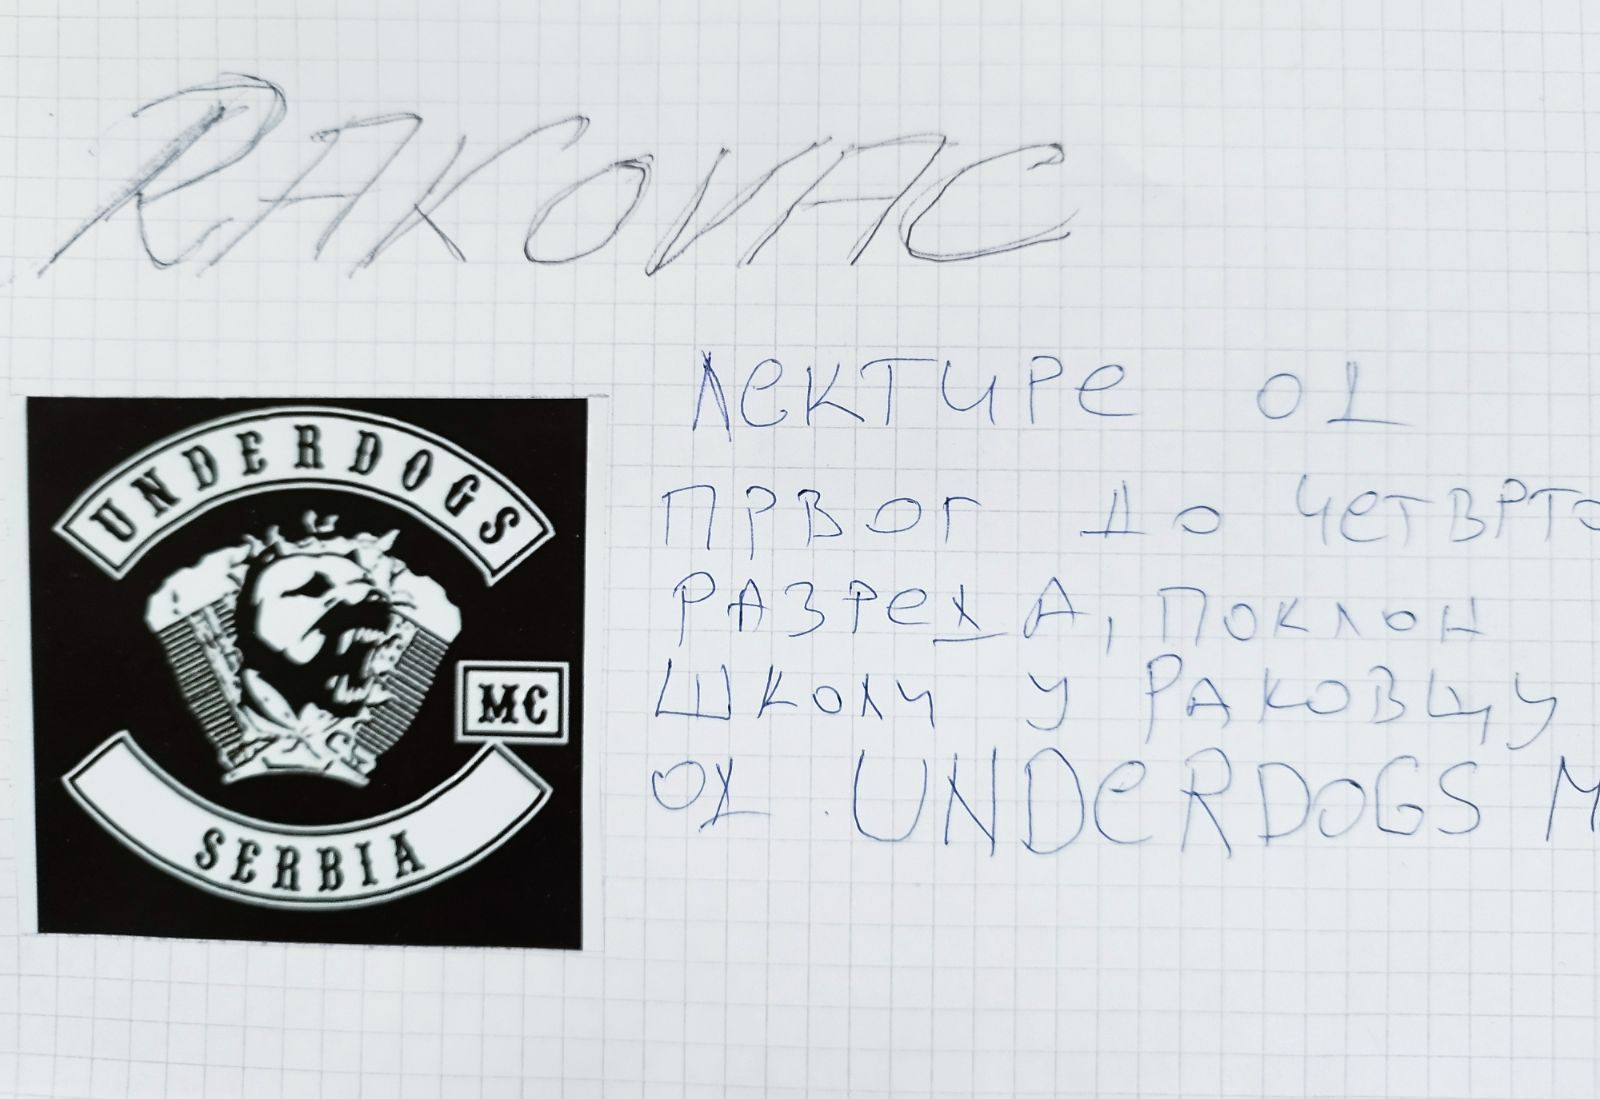 RAKOVAC
UNDERDOGS
MC
SERBIA
ЛЕКТИРЕ ОД
ПРВОГ ДО ЧЕТВРТО
РАЗРЕДА, ПОКЛОН
ШКОЛИ У РАКОВЦУ
ОД UNDERDOGS M